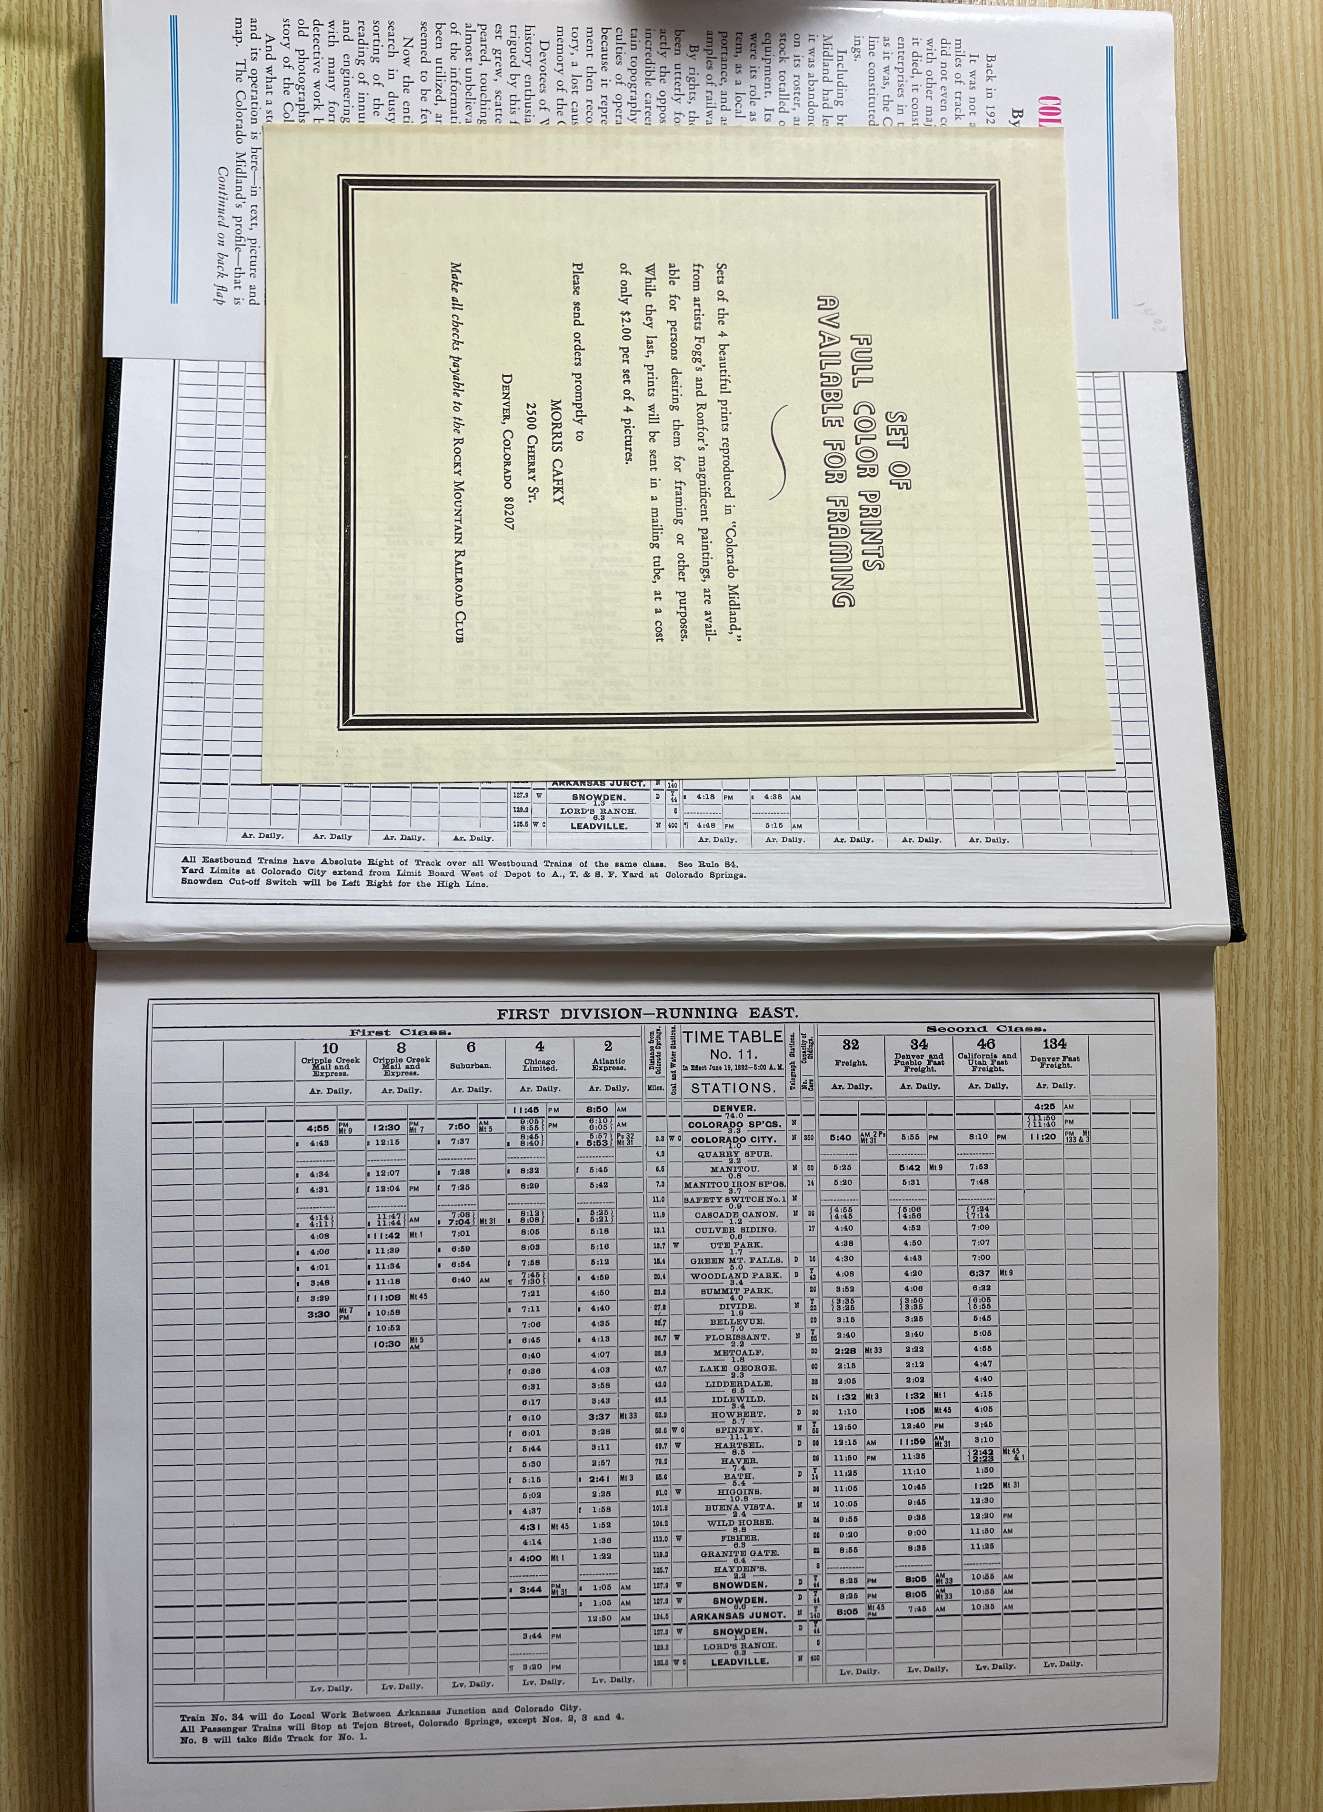 COL
By
Back in 192
It was not a
miles of track
did not even co
with other maj
it died, it const
enterprises in t
as it was, the C
line constituted
ings.
Including br
Midland had le
it was abandone
on its roster, a
stock totalled o
equipment. Its
were its role as
tem, as a local
portance, and as
amples of railwa
By rights, the
been utterly fo
actly the oppos
incredible career
tain topography
culties of opera
because it repre
ment then reco
tory, a lost caus
memory of the C
Devotees of W
history enthusia
trigued by this f
est grew, scatte
peared, touching
almost unbelieva
of the informati
been utilized, an
seemed to be fev
Now the enti
search in dusty
sorting of the
reading of innur
and engineering
with many forr
detective work b
old photographs
story of the Col
And what a sto
and its operation is here—in text, picture and
map. The Colorado Midland's profile—that is
Continued on back flap
SET OF
FULL COLOR PRINTS
AVAILABLE FOR FRAMING
Sets of the 4 beautiful prints reproduced in "Colorado Midland,"
from artists Fogg's and Ronfor's magnificent paintings, are avail-
able for persons desiring them for framing or other purposes.
While they last, prints will be sent in a mailing tube, at a cost
of only $2.00 per set of 4 pictures.
Please send orders promptly to
MORRIS CAFKY
2500 CHERRY ST.
DENVER, COLORADO 80207
Make all checks payable to the ROCKY MOUNTAIN RAILROAD CLUB
ARKANSAS JUNCT. N 140
127.9 W SNOWDEN. D 44 s 4:18 PM s 4:38 AM
1.3
129.2 LORD'S RANCH. 5
6.3
135.5 W C LEADVILLE. N 400 4:48 PM 5:15 AM
Ar. Daily. Ar. Daily Ar. Daily. Ar. Daily. Ar. Daily. Ar. Daily. Ar. Daily. Ar. Daily. Ar. Daily.
All Eastbound Trains have Absolute Right of Track over all Westbound Trains of the same class. See Rule 84.
Yard Limits at Colorado City extend from Limit Board West of Depot to A., T. & S. F. Yard at Colorado Springs.
Snowden Cut-off Switch will be Left Right for the High Line.
FIRST DIVISION—RUNNING EAST.
First Class. TIME TABLE No. 11. Second Class.
In Effect June 19, 1892—5:00 A. M.
10 8 6 4 2 32 34 46 134
Cripple Creek Mail and Express. Cripple Creek Mail and Express. Suburban. Chicago Limited. Atlantic Express. Freight. Denver and Pueblo Fast Freight. California and Utah Fast Freight. Denver Fast Freight.
Ar. Daily. Ar. Daily. Ar. Daily. Ar. Daily. Ar. Daily. Miles. STATIONS. Ar. Daily. Ar. Daily. Ar. Daily. Ar. Daily.
11:45 PM 8:50 AM DENVER. 4:25 AM
74.0
4:55 PM Mt 9 12:30 PM Mt 7 7:50 AM Mt 5 9:05 8:55 PM 6:10 6:05 AM COLORADO SP'GS. N 11:50 11:40 PM
3.3
s 4:43 s 12:15 s 7:37 s 8:45 8:40 5:57 5:53 Ps 32 Mt 31 3.3 W C COLORADO CITY. N 350 5:40 AM 2 Ps Mt 31 5:55 PM 8:10 PM 11:20 PM Mt 133 & 3
1.0
4.3 QUARRY SPUR.
2.2
s 4:34 s 12:07 s 7:28 s 8:32 f 5:45 6.5 MANITOU. N 50 5:25 5:42 Mt 9 7:53
0.8
f 4:31 f 12:04 PM f 7:25 8:29 5:42 7.3 MANITOU IRON SP'GS. 14 5:20 5:31 7:48
3.7
11.0 SAFETY SWITCH No. 1 N
0.9
4:14 4:11 11:47 11:44 AM 7:08 7:04 Mt 31 8:12 8:08 5:25 5:21 11.9 CASCADE CANON. N 36 4:55 4:45 5:06 4:56 7:24 7:14
1.2
4:08 s 11:42 Mt 1 7:01 8:05 5:18 13.1 CULVER SIDING. 17 4:40 4:52 7:09
0.6
s 4:06 s 11:39 s 6:59 8:03 5:16 13.7 W UTE PARK. 4:38 4:50 7:07
1.7
s 4:01 s 11:34 s 6:54 f 7:58 5:12 15.4 GREEN MT. FALLS. D 16 4:30 4:43 7:00
5.0
s 3:48 s 11:18 6:40 AM 7:45 7:30 s 4:59 20.4 WOODLAND PARK. D 43 4:08 4:20 6:37 Mt 9
3.4
f 3:39 f 11:08 Mt 45 7:21 4:50 23.8 SUMMIT PARK. 20 3:52 4:06 6:22
4.0
3:30 Mt 7 PM s 10:58 s 7:11 s 4:40 27.8 DIVIDE. N 3:35 3:25 3:50 3:35 6:05 5:55
1.9
f 10:52 7:06 4:35 29.7 BELLEVUE. 3:15 3:25 5:45
7.0
10:30 Mt 5 AM s 6:45 s 4:13 36.7 W FLORISSANT. N 2:40 2:40 5:05
2.2
6:40 4:07 38.9 METCALF. 2:28 Mt 33 2:22 4:55
1.8
f 6:36 4:03 40.7 LAKE GEORGE. 2:15 2:12 4:47
2.3
6:31 3:58 43.0 LIDDERDALE. 2:05 2:02 4:40
6.5
6:17 3:43 49.5 IDLEWILD. 24 1:32 Mt 3 1:32 Mt 1 4:15
3.4
f 6:10 3:37 Mt 33 52.9 HOWBERT. D 1:10 1:05 Mt 45 4:05
5.7
f 6:01 3:28 58.6 W C SPINNEY. N 12:50 12:40 PM 3:45
11.1
f 5:44 3:11 69.7 W HARTSEL. D 12:15 AM 11:59 AM Mt 31 3:10
8.5
5:30 2:57 78.2 HAVER. 11:50 PM 11:35 2:42 2:23 Mt 45 & 1
7.4
f 5:15 s 2:41 Mt 3 85.6 BATH. D 11:25 11:10 1:50
5.4
5:02 2:28 91.0 W HIGGINS. 11:05 10:45 1:25 Mt 31
10.8
s 4:37 f 1:58 101.8 BUENA VISTA. N 16 10:05 9:45 12:30
2.4
4:31 Mt 45 1:52 104.2 WILD HORSE. 9:55 9:35 12:20 PM
8.8
4:14 1:36 113.0 W FISHER. 9:20 9:00 11:50 AM
6.3
s 4:00 Mt 1 1:22 119.3 GRANITE GATE. 8:55 8:35 11:25
6.4
125.7 HAYDEN'S.
2.2
s 3:44 PM Mt 31 s 1:05 AM 127.9 W SNOWDEN. D 44 8:25 PM 8:05 AM Mt 33 10:55 AM
s 1:05 AM 127.9 W SNOWDEN. D 44 8:25 PM 8:05 AM Mt 33 10:55 AM
6.6
12:50 AM 134.5 ARKANSAS JUNCT. N 140 8:05 Mt 45 PM 7:45 AM 10:35 AM
3:44 PM 127.9 W SNOWDEN. D 44
1.3
129.2 LORD'S RANCH. 5
6.3
3:20 PM 135.5 W C LEADVILLE. N 400
Lv. Daily. Lv. Daily. Lv. Daily. Lv. Daily. Lv. Daily. Lv. Daily. Lv. Daily. Lv. Daily. Lv. Daily.
Train No. 34 will do Local Work Between Arkansas Junction and Colorado City.
All Passenger Trains will Stop at Tejon Street, Colorado Springs, except Nos. 2, 3 and 4.
No. 8 will take Side Track for No. 1.